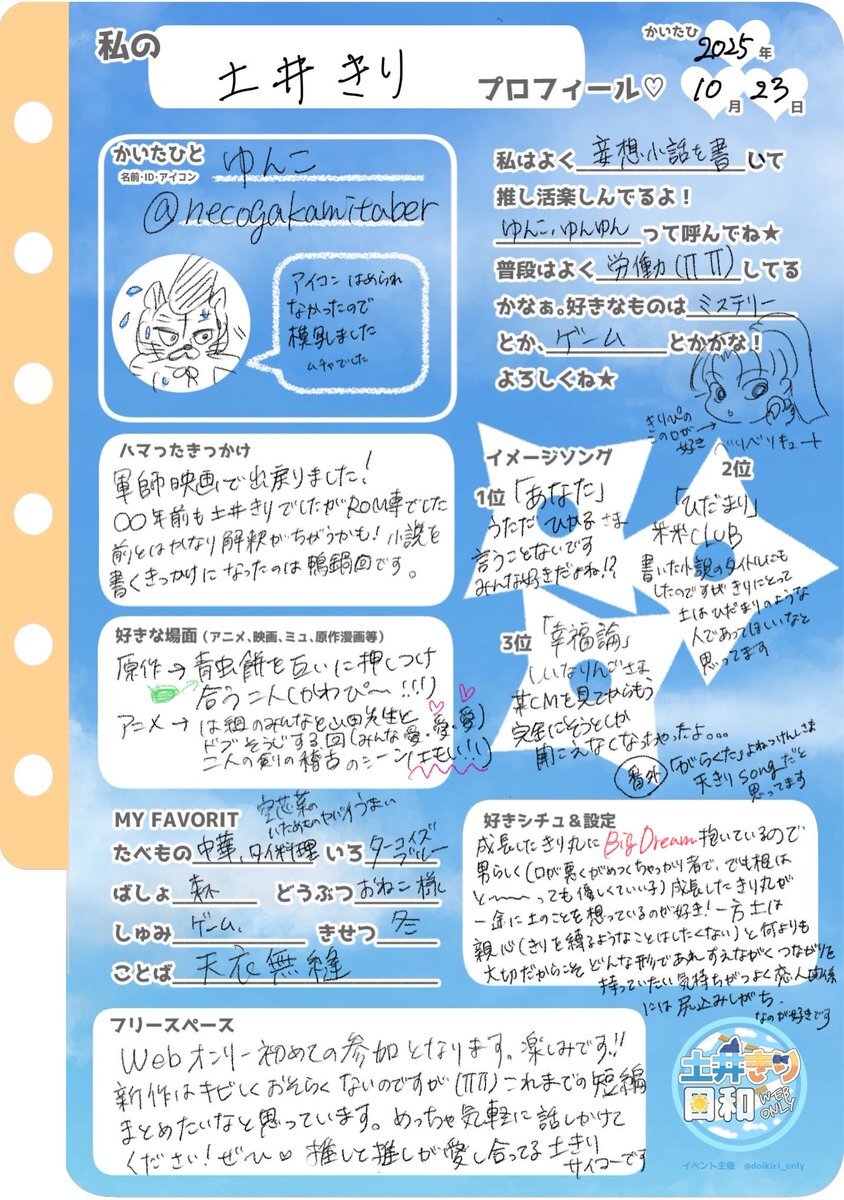 私の
土井きり
プロフィール♡
かいたひ
2025年
10月23日
かいたひと
名前・ID・アイコン
ゆんこ
@necogakamitaber
アイコン はめられ
なかったので
模乳しました
ムチャでした
私はよく 妄想小話を書 いて
推し活楽しんでるよ！
ゆんこ、ゆんゆん って呼んでね★
普段はよく 労働力(ΠΠ) してる
かなぁ。好きなものは ミステリー
とか、ゲーム とかかな！
よろしくね★
きりぴの
この口が→
好き
ベリベリキュート
ハマったきっかけ
軍師映画で出戻りました！
〇〇年前も土井きりでしたがROM専でした
前とはかなり解釈がちがうかも！小説を
書くきっかけになったのは鴨鍋回です。
イメージソング
1位「あなた」
うただ ひかる さま
言うことないです
みんな好きだよね!?
2位
「ひだまり」
米米CLUB
書いた小説のタイトルにも
したのですがきりにとって
土はひだまりのような
人であってほしいなと
思ってます
3位「幸福論」
しいなりんごさま
某CMを見てからもう
完全にそうとしか
聞こえなくなっちゃったよ…
番外「がらくた」よねづけんしさま
天きりsongだと
思ってます
好きな場面（アニメ、映画、ミュ、原作漫画等）
原作→青虫餅を互いに押しつけ
合う二人(かわぴ〜!!!)
アニメ→は組のみんなと山田先生と
ドブそうじする回(みんな愛・愛・愛)
二人の剣の稽古のシーン(えもい!!)
MY FAVORIT
空芯菜の
いためものヤバイうまい
たべもの 中華、タイ料理 いろ ターコイズブルー
ばしょ 森 どうぶつ おねこ様
しゅみ ゲーム、 きせつ 冬
ことば 天衣無縫
好きシチュ＆設定
成長したきり丸にBig Dream抱いているので
男らしく(口が悪くがめつくちゃっかり者で、でも根は
と〜〜っても優しくていい子)成長したきり丸が
一途に土のことを想っているのが好き！一方土は
親心(きりを縛るようなことはしたくない)と何よりも
大切だからこそどんな形であれすえながくつながりを
持っていたい気持ちがつよく恋人関係
には尻込みしがち.
なのが好きです
フリースペース
Webオンリー初めての参加となります。楽しみです!!
新作はキビしくおそらくないのですが(ΠΠ)これまでの短編
まとめたいなと思っています。めっちゃ気軽に話しかけて
ください！ぜひ♡推しと推しが愛し合ってる土きり
サイコーです
土井きり
日和
WEB
ONLY
イベント主催 @doikiri_only